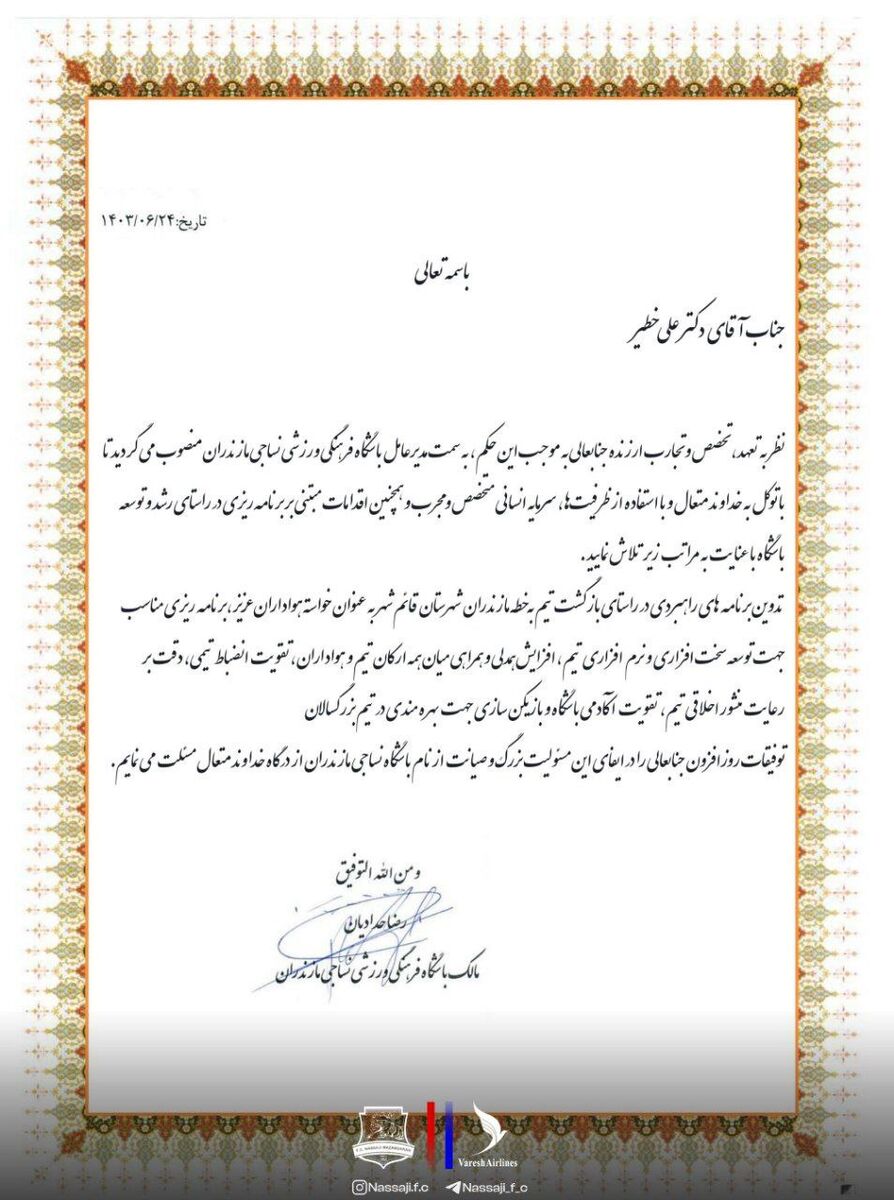 تاریخ:۱۴۰۳/۰۶/۲۴
باسمه تعالی
جناب آقای دکتر علی خطیر
نظر به تعهد، تخصص و تجارب ارزنده جنابعالی به موجب این حکم، به سمت مدیرعامل باشگاه فرهنگی ورزشی نساجی مازندران منصوب می گردید تا
با توکل به خداوند متعال و با استفاده از ظرفیت‌ها، سرمایه انسانی متخصص و مجرب و همچنین اقدامات مبتنی بر برنامه ریزی در راستای رشد و توسعه
باشگاه با عنایت به مراتب زیر تلاش نمایید.
تدوین برنامه های راهبردی در راستای بازگشت تیم به خطه مازندران شهرستان قائم شهر به عنوان خواسته هواداران عزیز، برنامه ریزی مناسب
جهت توسعه سخت افزاری و نرم افزاری تیم، افزایش همدلی و همراهی میان همه ارکان تیم و هواداران، تقویت انضباط تیمی، دقت بر
رعایت منشور اخلاقی تیم، تقویت آکادمی باشگاه و بازیکن سازی جهت بهره مندی در تیم بزرگسالان
توفیقات روزافزون جنابعالی را در ایفای این مسئولیت بزرگ و صیانت از نام باشگاه نساجی مازندران از درگاه خداوند متعال مسئلت می نمایم.
و من الله التوفیق
رضا حدادیان
مالک باشگاه فرهنگی ورزشی نساجی مازندران
F.C. NASSAJI MAZANDARAN
VareshAirlines
Nassaji.f.c
Nassaji_f_c